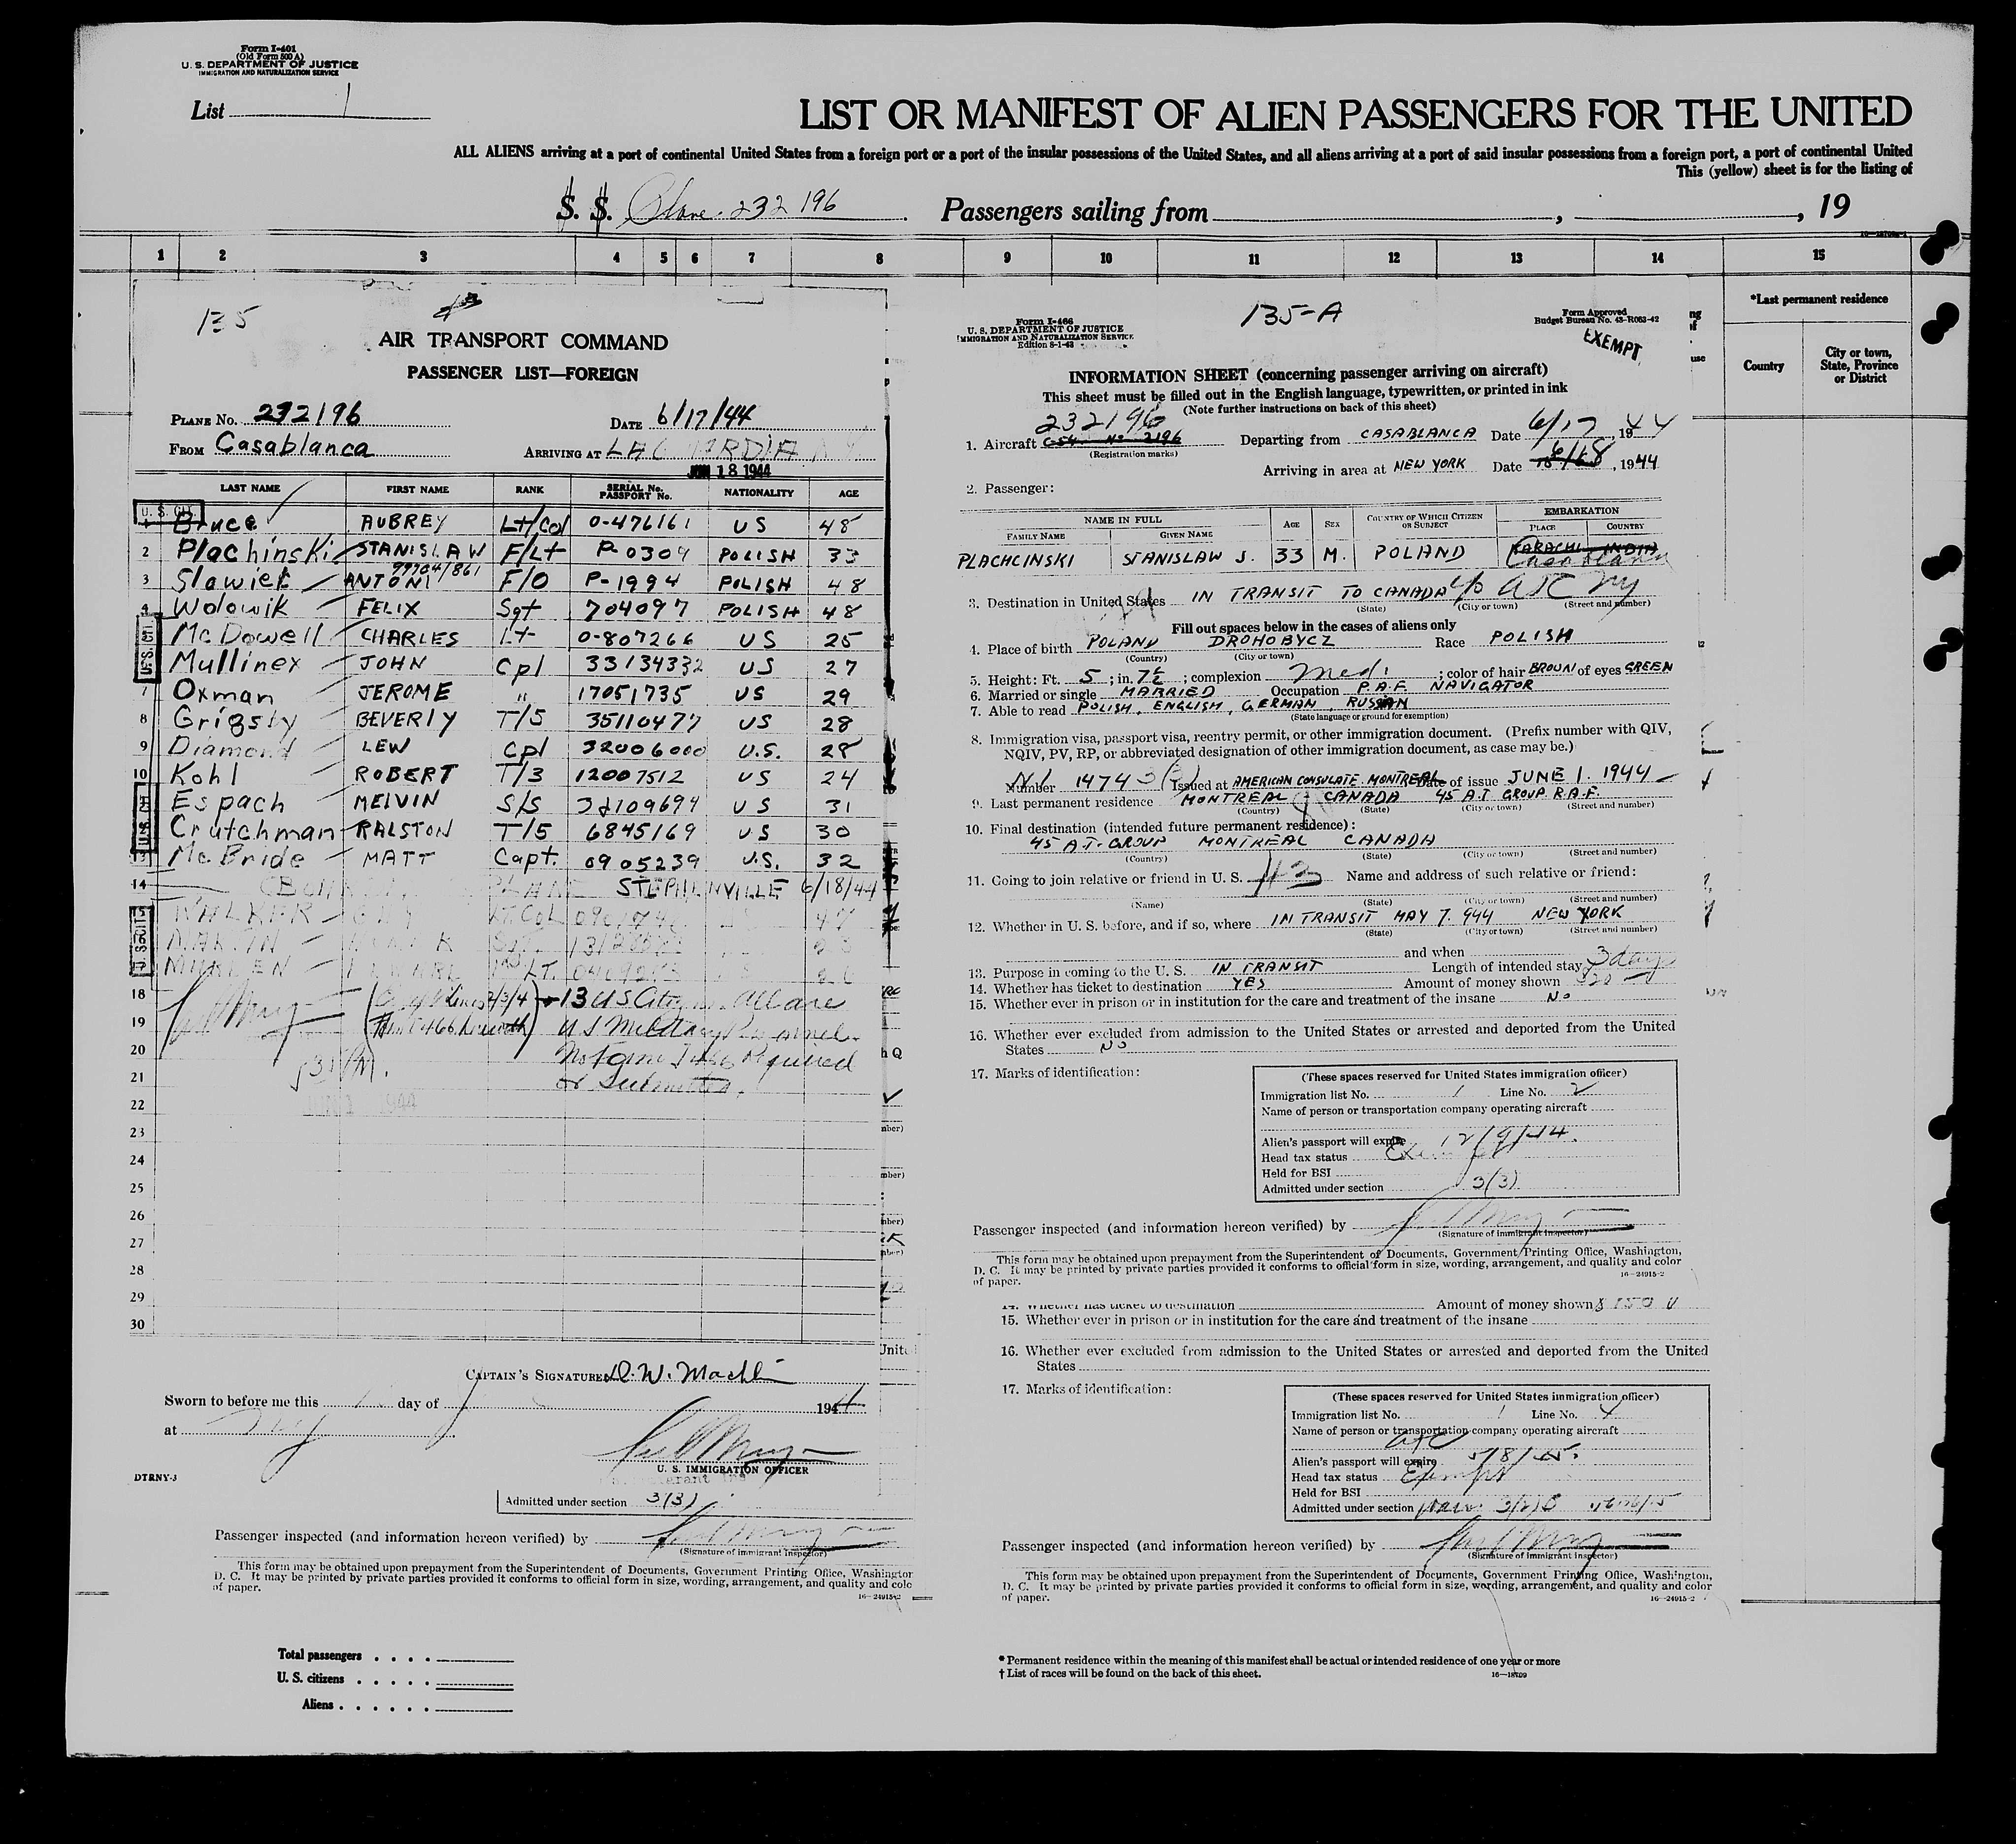 Form I-401
(Old Form 500 A)
U. S. DEPARTMENT OF JUSTICE
IMMIGRATION AND NATURALIZATION SERVICE
List 1
LIST OR MANIFEST OF ALIEN PASSENGERS FOR THE UNITED
ALL ALIENS arriving at a port of continental United States from a foreign port or a port of the insular possessions of the United States, and all aliens arriving at a port of said insular possessions from a foreign port, a port of continental United
This (yellow) sheet is for the listing of
S. S. Plane. 232 196 Passengers sailing from , , 19
1 2 3 4 5 6 7 8 9 10 11 12 13 14 15
*Last permanent residence
Country
City or town, State, Province or District
135
AIR TRANSPORT COMMAND
PASSENGER LIST—FOREIGN
PLANE NO. 232196 DATE 6/17/44
FROM Casablanca ARRIVING AT
JUN 18 1944
LAST NAME FIRST NAME RANK SERIAL No. PASSPORT No. NATIONALITY AGE
U. S. CIT.
1 Bruce AUBREY Lt/Col 0-476161 US 48
2 Plachinski STANISLAW F/Lt P-0304 POLISH 33
99704/861
3 ANTONI F/O P-1994 POLISH 48
4 Wolowik FELIX Sgt 704097 POLISH 48
McDowell CHARLES Lt 0-807266 US 25
Mullinex JOHN Cpl 33134332 US 27
7 Oxman JEROME " 17051735 US 29
8 Grigsby BEVERLY T/5 35110477 US 28
9 Diamond LEW Cpl 32006000 U.S. 28
10 Kohl ROBERT T/3 12007512 US 24
Espach MELVIN S/S US 31
Crutchman RALSTON T/5 6845169 US 30
13 McBride MATT Capt. 0905239 U.S. 32
14 STEPHENVILLE 6/18/44
WALKER LT. COL 47
MARTIN
LT.
18 13 US All are
19 U S Military
20 No Form I466 Required
21 or Submitted.
22
23
24
25
26
27
28
29
30
CAPTAIN'S SIGNATURE
Sworn to before me this day of 1944
at
U. S. IMMIGRATION OFFICER
DTRNY-3
Admitted under section 3(3)
Passenger inspected (and information hereon verified) by
(Signature of immigrant inspector)
This form may be obtained upon prepayment from the Superintendent of Documents, Government Printing Office, Washington
D. C. It may be printed by private parties provided it conforms to official form in size, wording, arrangement, and quality and colo
of paper.
16—24915-2
Total passengers
U. S. citizens
Aliens
135-A
Form I-466
U. S. DEPARTMENT OF JUSTICE
IMMIGRATION AND NATURALIZATION SERVICE
Edition 8-1-43
Form Approved
Budget Bureau No. 43-R063-42
EXEMPT
INFORMATION SHEET (concerning passenger arriving on aircraft)
This sheet must be filled out in the English language, typewritten, or printed in ink
(Note further instructions on back of this sheet)
232196
1. Aircraft C54 No 2196 Departing from CASABLANCA Date 6/17, 1944
(Registration marks)
Arriving in area at NEW YORK Date , 1944
2. Passenger:
NAME IN FULL AGE SEX COUNTRY OF WHICH CITIZEN OR SUBJECT EMBARKATION
FAMILY NAME GIVEN NAME PLACE COUNTRY
PLACHCINSKI STANISLAW J. 33 M. POLAND KARACHI INDIA
Casablanca
3. Destination in United States IN TRANSIT TO CANADA c/o ATC NY
(State) (City or town) (Street and number)
Fill out spaces below in the cases of aliens only
4. Place of birth POLAND DROHOBYCZ Race POLISH
(Country) (City or town)
5. Height: Ft. 5; in. 7½; complexion Med.; color of hair BROWN of eyes GREEN
6. Married or single MARRIED Occupation P.A.F. NAVIGATOR
7. Able to read POLISH, ENGLISH, GERMAN, RUSSIAN
(State language or ground for exemption)
8. Immigration visa, passport visa, reentry permit, or other immigration document. (Prefix number with QIV,
NQIV, PV, RP, or abbreviated designation of other immigration document, as case may be.)
Number 14743 Issued at AMERICAN CONSULATE. MONTREAL Date of issue JUNE 1. 1944
9. Last permanent residence MONTREAL CANADA 45 A.T. GROUP R.A.F.
(Country) (State) (City or town) (Street and number)
10. Final destination (intended future permanent residence):
45 A.T. GROUP MONTREAL CANADA
(Country) (State) (City or town) (Street and number)
11. Going to join relative or friend in U. S. Name and address of such relative or friend:
(Name) (State) (City or town) (Street and number)
12. Whether in U. S. before, and if so, where IN TRANSIT MAY 7. 944 NEW YORK
(State) (City or town) (Street and number)
and when
13. Purpose in coming to the U. S. IN TRANSIT Length of intended stay 3 days
14. Whether has ticket to destination YES Amount of money shown $20
15. Whether ever in prison or in institution for the care and treatment of the insane No
16. Whether ever excluded from admission to the United States or arrested and deported from the United
States NO
17. Marks of identification:
(These spaces reserved for United States immigration officer)
Immigration list No. 1 Line No. 2
Name of person or transportation company operating aircraft
Alien's passport will expire 12/9/44.
Head tax status
Held for BSI
Admitted under section 3(3)
Passenger inspected (and information hereon verified) by
(Signature of immigrant inspector)
This form may be obtained upon prepayment from the Superintendent of Documents, Government Printing Office, Washington,
D. C. It may be printed by private parties provided it conforms to official form in size, wording, arrangement, and quality and color
of paper.
16—24915-2
14. Whether has ticket to destination Amount of money shown $150
15. Whether ever in prison or in institution for the care and treatment of the insane
16. Whether ever excluded from admission to the United States or arrested and deported from the United
States
17. Marks of identification:
(These spaces reserved for United States immigration officer)
Immigration list No. 1 Line No. 4
Name of person or transportation company operating aircraft
ATC
Alien's passport will expire 5/8/45.
Head tax status Exempt
Held for BSI
Admitted under section
Passenger inspected (and information hereon verified) by
(Signature of immigrant inspector)
This form may be obtained upon prepayment from the Superintendent of Documents, Government Printing Office, Washington,
D. C. It may be printed by private parties provided it conforms to official form in size, wording, arrangement, and quality and color
of paper.
16—24915-2
* Permanent residence within the meaning of this manifest shall be actual or intended residence of one year or more
† List of races will be found on the back of this sheet.
16—18709